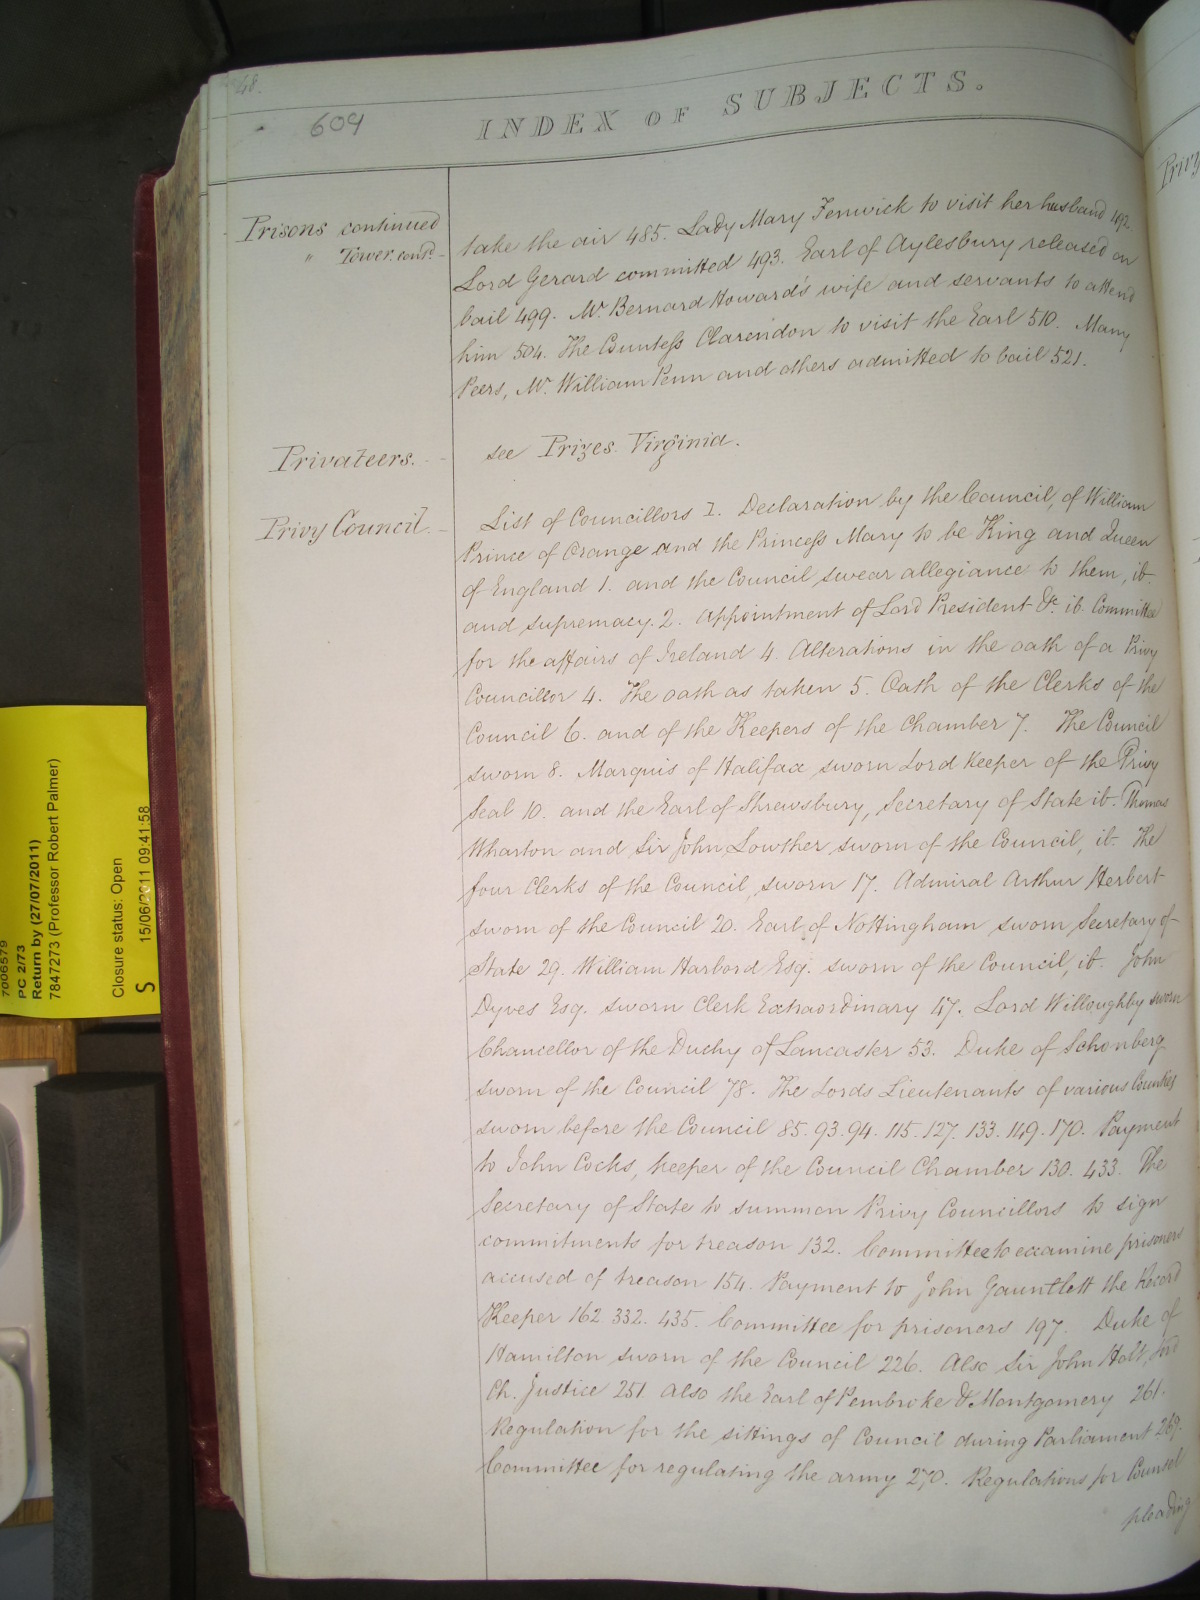 48.
604
INDEX OF SUBJECTS.
Prisons continued
" Tower. contd.
take the air 485. Lady Mary Fenwick to visit her husband 492.
Lord Gerard committed 493. Earl of Aylesbury released on
bail 499. Mr. Bernard Howard's wife and servants to attend
him 504. The Countess Clarendon to visit the Earl 510. Many
Peers, Mr. William Penn and others admitted to bail 521.
Privateers.
see Prizes. Virginia.
Privy Council.
List of Councillors I. Declaration by the Council, of William
Prince of Orange and the Princess Mary to be King and Queen
of England 1. and the Council swear allegiance to them, ib.
and supremacy. 2. Appointment of Lord President &c. ib. Committee
for the affairs of Ireland 4. Alterations in the oath of a Privy
Councillor 4. The oath as taken 5. Oath of the Clerks of the
Council 6. and of the Keepers of the Chamber 7. The Council
sworn 8. Marquis of Halifax sworn Lord Keeper of the Privy
Seal 10. and the Earl of Shrewsbury, Secretary of State ib. Thomas
Wharton and Sir John Lowther sworn of the Council, ib. The
four Clerks of the Council, sworn 17. Admiral Arthur Herbert
sworn of the Council 20. Earl of Nottingham sworn Secretary of
State 29. William Harbord Esq. sworn of the Council, ib. John
Dyves Esq. sworn Clerk Extraordinary 47. Lord Willoughby sworn
Chancellor of the Duchy of Lancaster 53. Duke of Schonberg
sworn of the Council 78. The Lords Lieutenants of various Counties
sworn before the Council 85. 93. 94. 115. 127. 133. 149. 170. Payment
to John Cocks, keeper of the Council Chamber 130. 433. The
Secretary of State to summon Privy Councillors to sign
commitments for treason 132. Committee to examine prisoners
accused of treason 154. Payment to John Gauntlett the Record
Keeper 162. 332. 435. Committee for prisoners 197. Duke of
Hamilton sworn of the Council 226. Also Sir John Holt, Lord
Ch. Justice 251. Also the Earl of Pembroke & Montgomery 261.
Regulation for the sittings of Council during Parliament 269.
Committee for regulating the army 270. Regulations for Counsel
pleading
7006579
PC 2/73
Return by (27/07/2011)
7847273 (Professor Robert Palmer)
Closure status: Open
S 15/06/2011 09:41:58
Privy